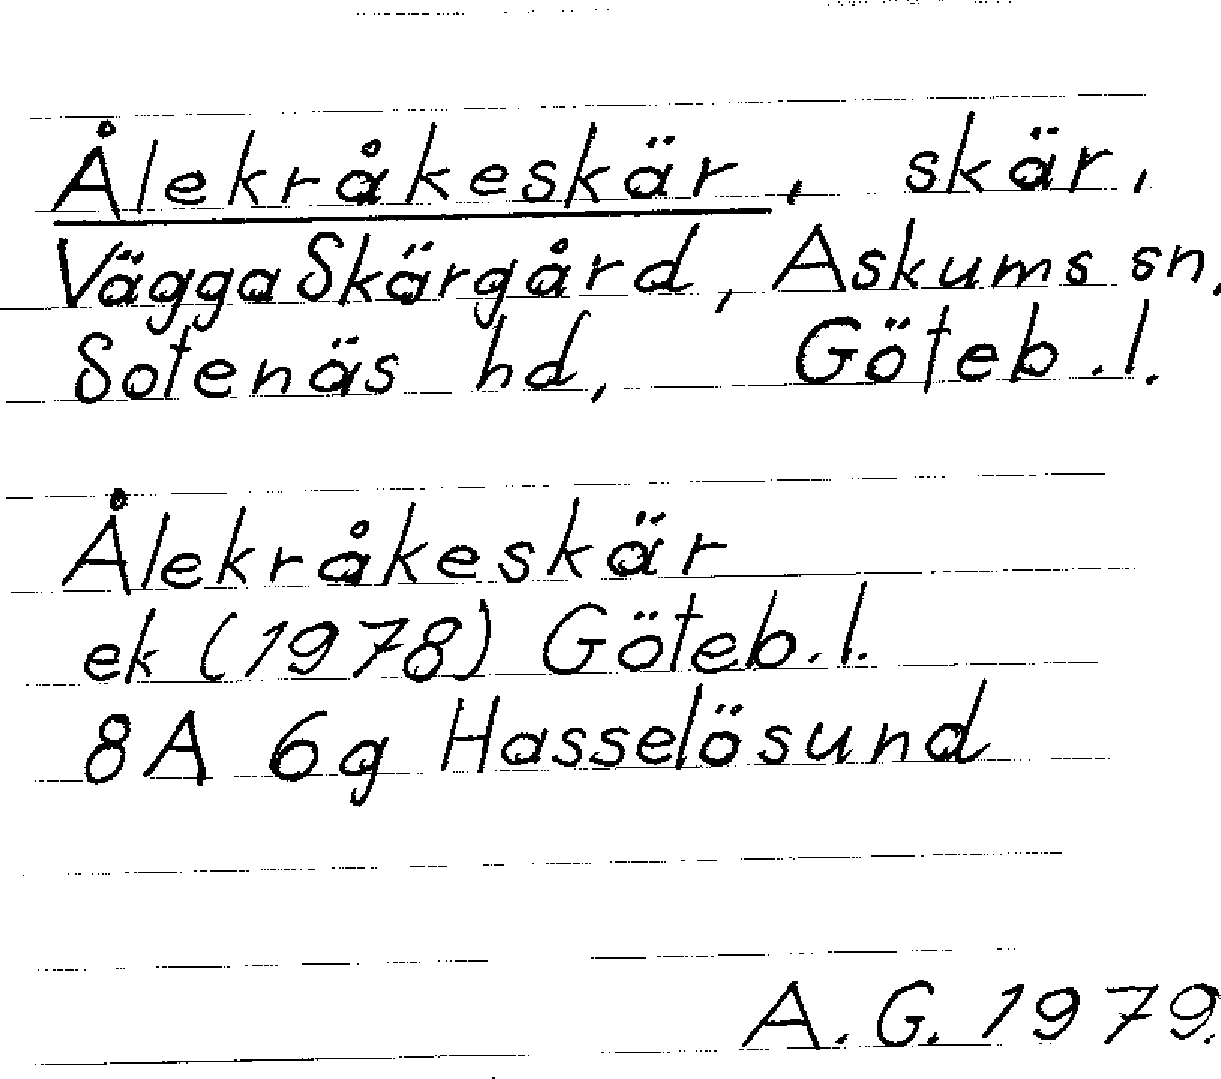 Ålekråkeskär, skär,
Vägga Skärgård, Askums sn,
Sotenäs hd, Göteb. l.
Ålekråkeskär
ek (1978) Göteb. l.
8A 6g Hasselösund
A. G. 1979.